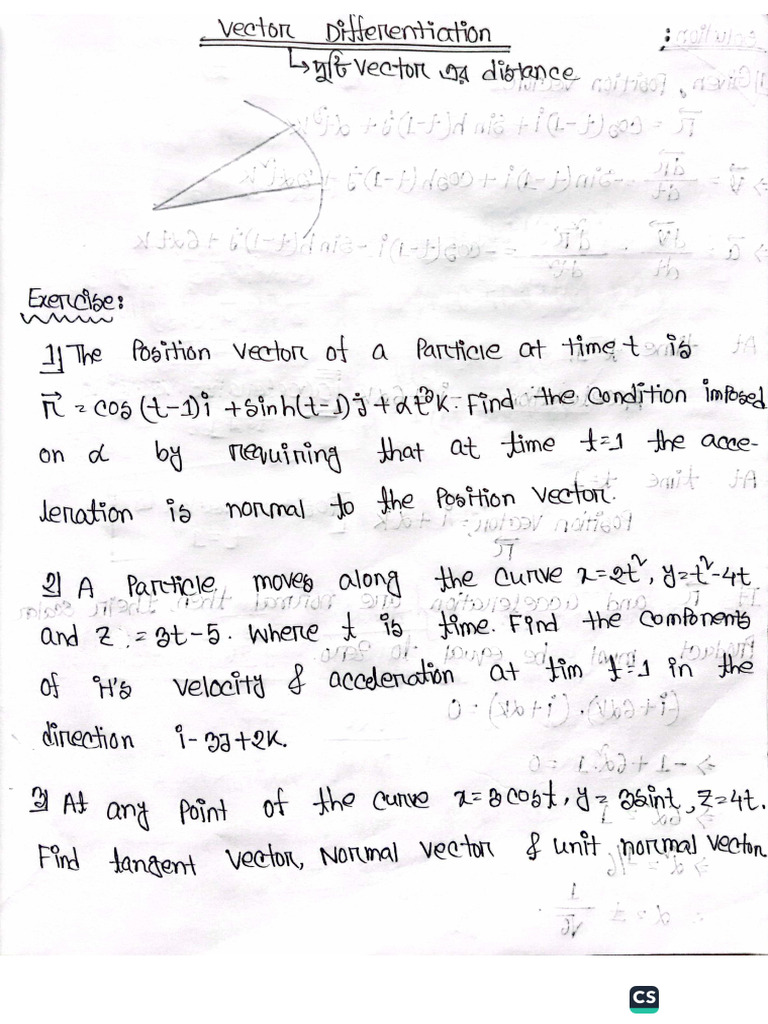 Vector Differentiation
↳ দুটি vector এর distance
Exercise:
1) The Position vector of a Particle at time t is
r⃗ = cos(t-1)i + sinh(t-1)j + αt³k. Find the Condition imposed
on α by requiring that at time t=1 the acce-
leration is normal to the Position vector.
2) A Particle moves along the curve x=2t², y=t²-4t
and z = 3t-5. Where t is time. Find the Components
of it's velocity & acceleration at tim t=1 in the
direction i-3j+2k.
3) At any point of the curve x=3cost, y=3sint, z=4t.
Find tangent vector, Normal vector & unit normal vector
CS